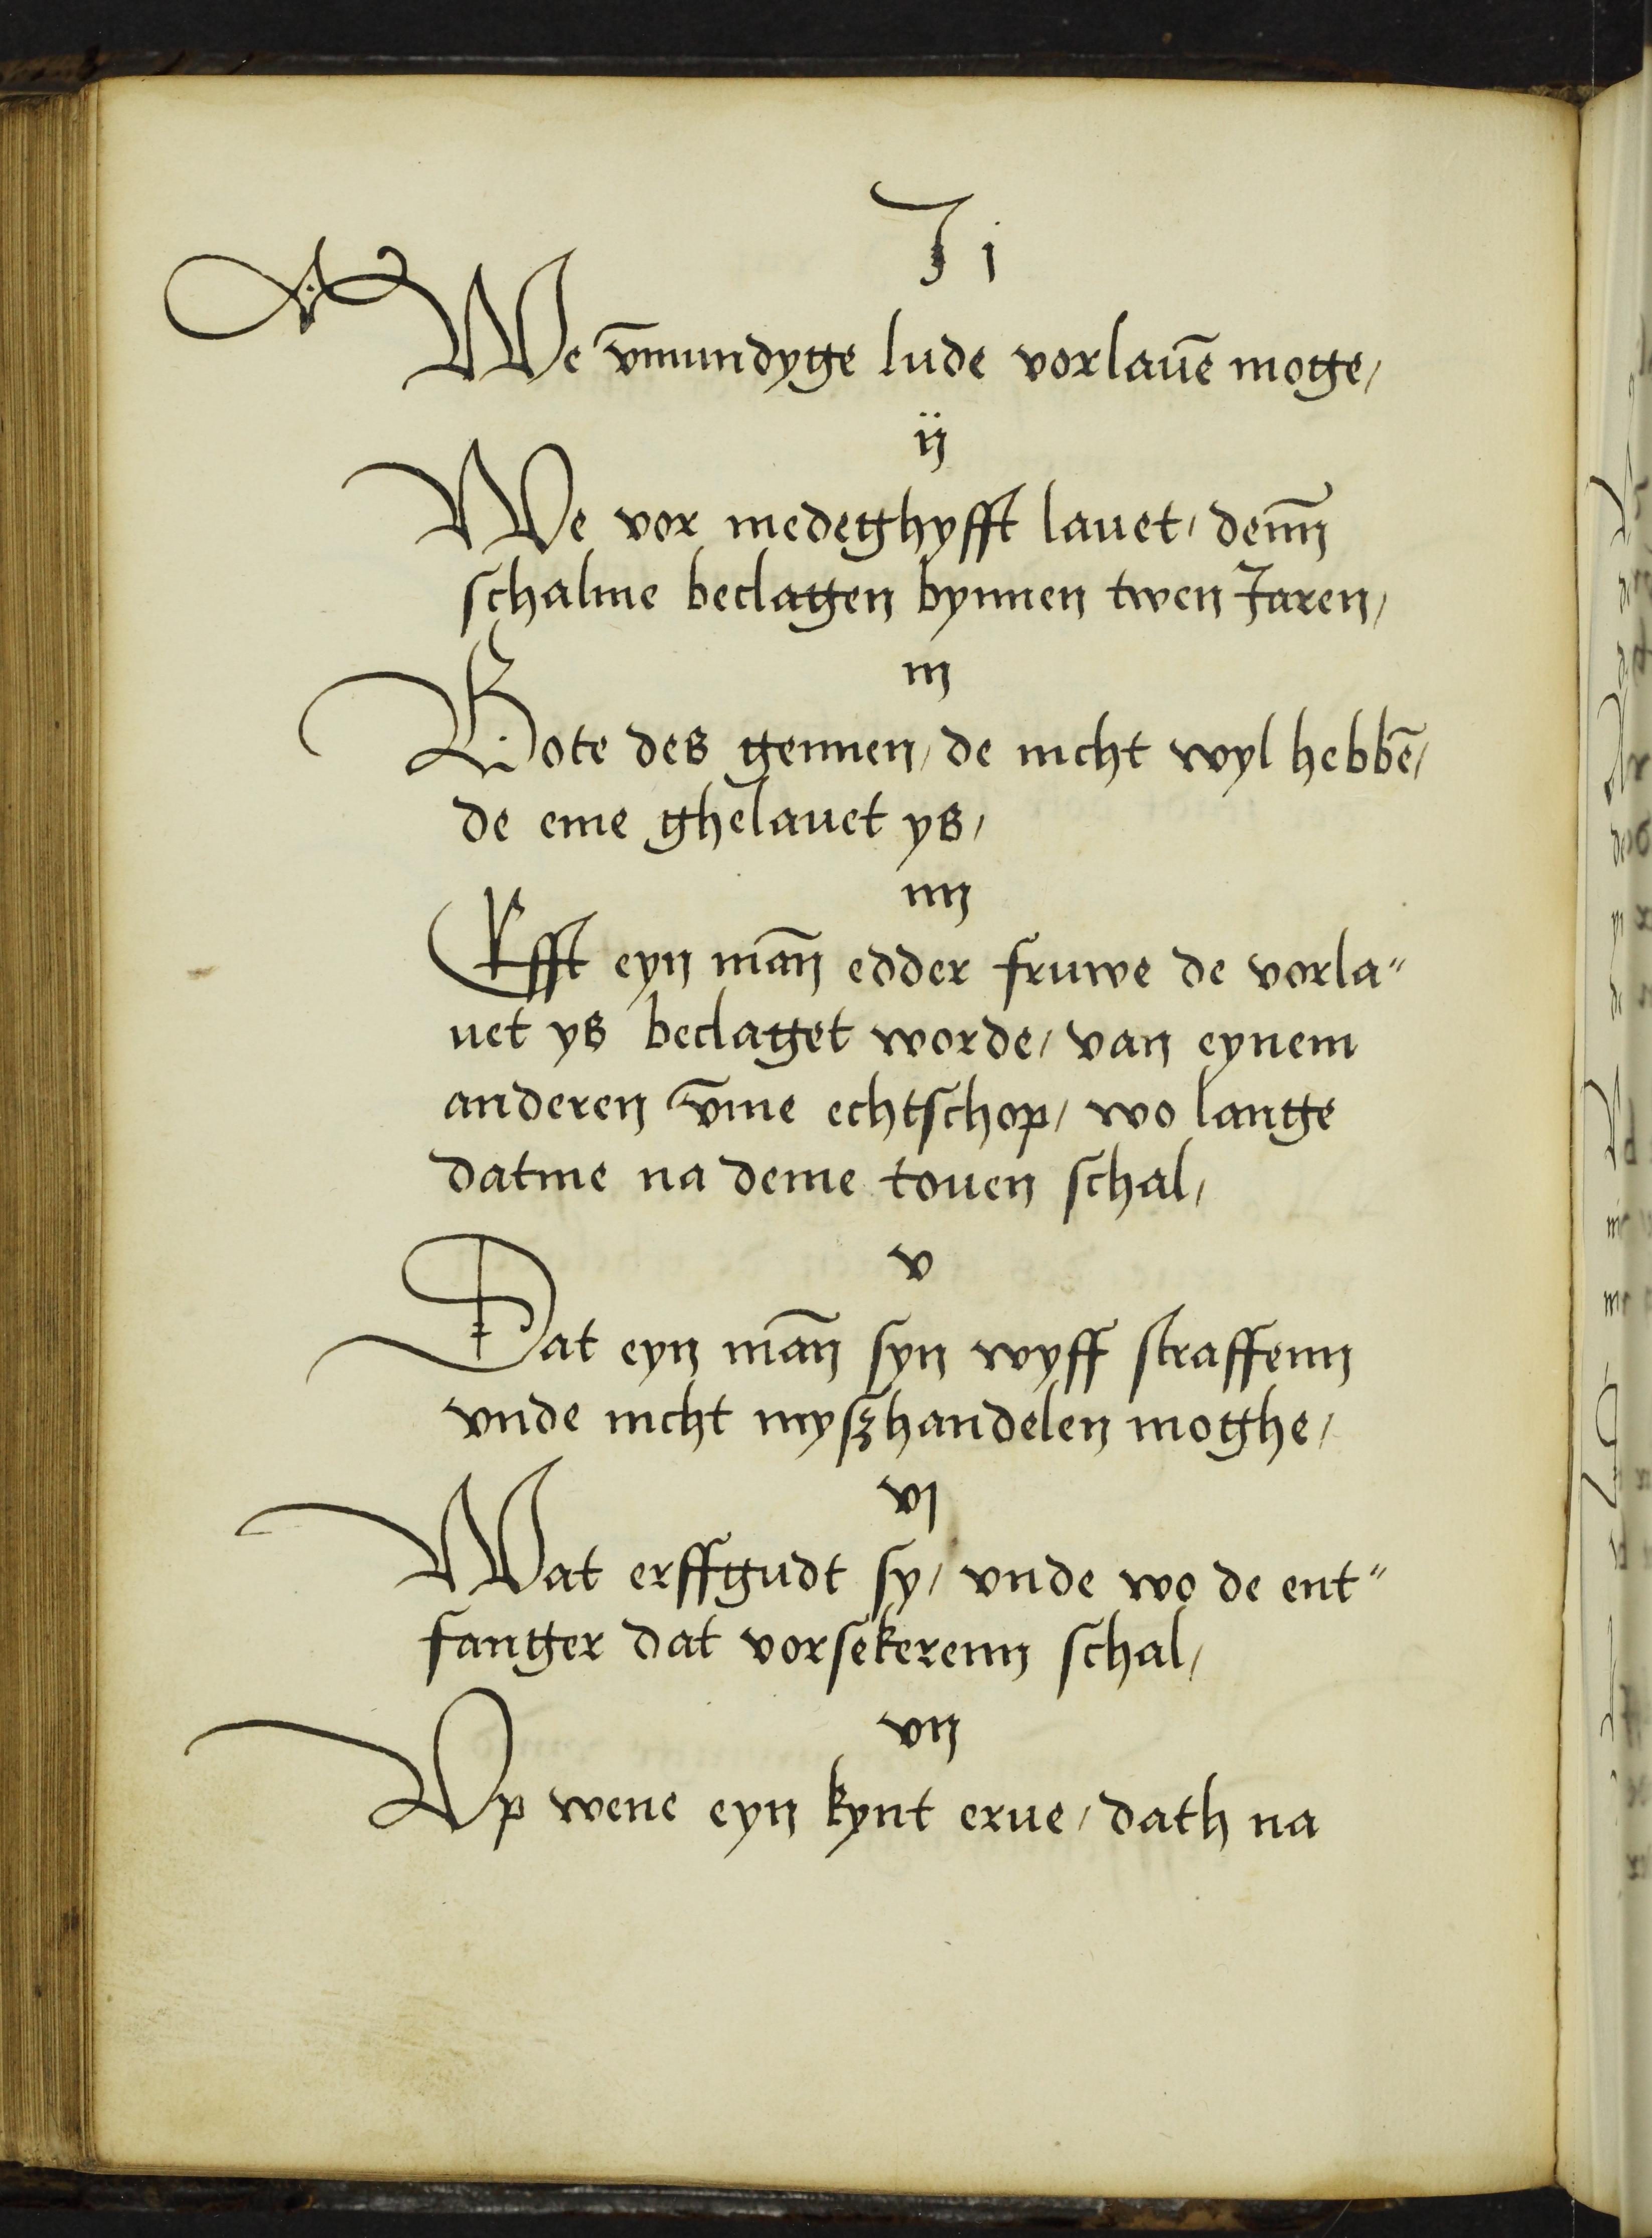 J i
We v̄mundyge lude vorlauē moge/
ij
We vor medeghyfft lauet/ denn̄
schalme beclagen bynnen twen Jaren/
iij
Bote des gennen/ de nicht wyl hebbē/
de eme ghelauet ys/
iiij
Efft eyn man̄ edder fruwe de vorla"
uet ys beclaget worde/ van eynem
anderen v̄me echtschop/ wo lange
datme na deme touen schal/
v
Dat eyn man̄ syn wyff straffenn
vnde nicht myszhandelen moghe/
vi
Wat erffgudt sy/ vnde wo de ent"
fanger dat vorsekerenn schal/
vij
Vp wene eyn kynt erue/ dath na